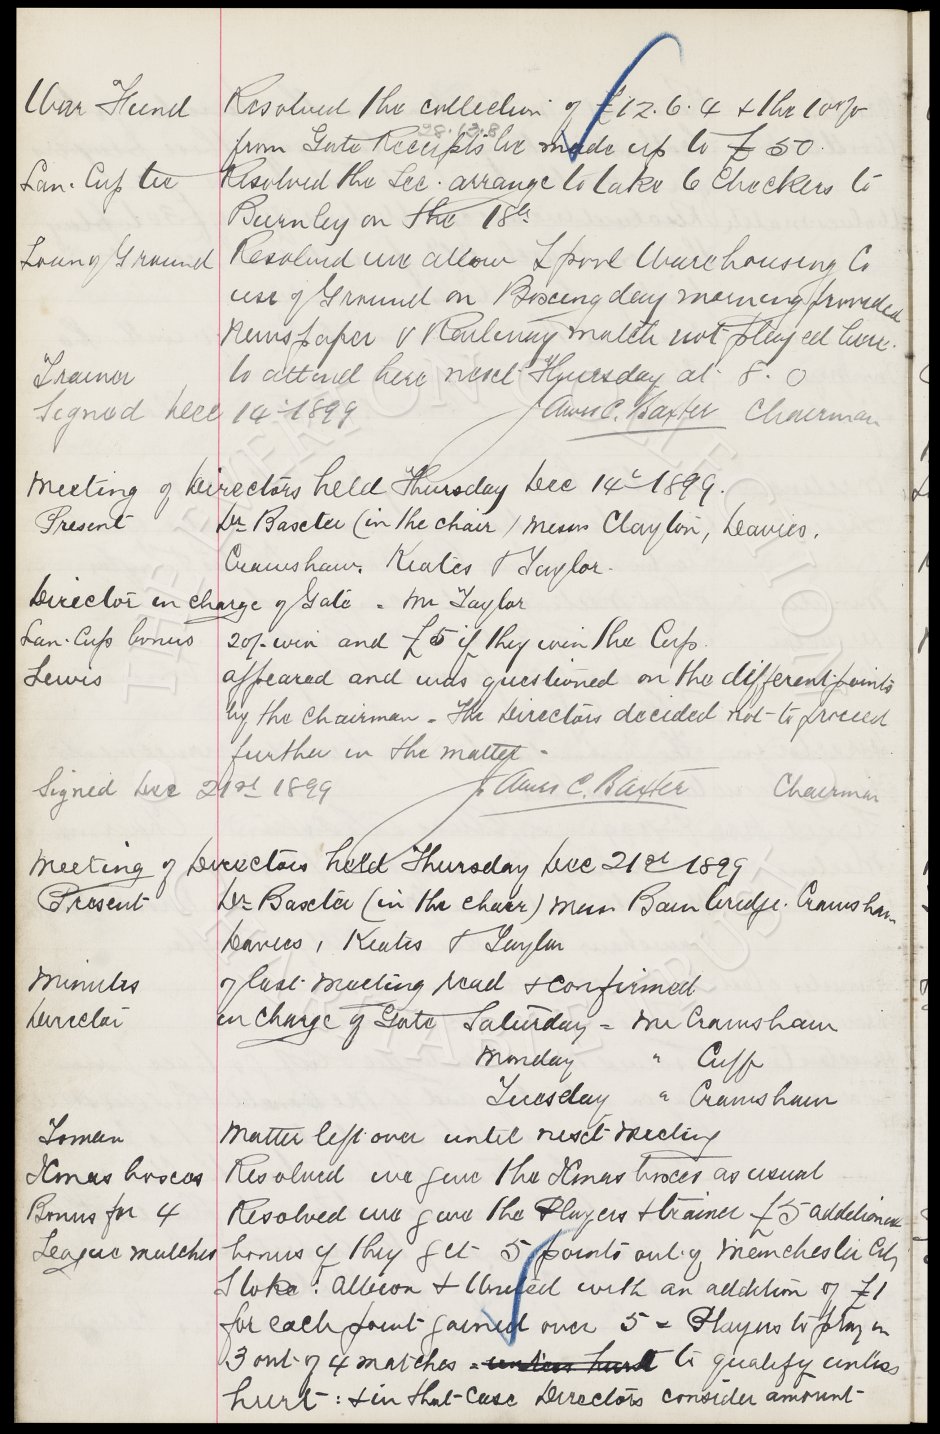 War Fund Resolved the collection of £12.6.4 & the 10%
28.13.8
from Gate Receipts be made up to £50.
Lan. Cup tie Resolved the Sec. arrange to take 6 Checkers to
Burnley on the 18th
Loan of Ground Resolved we allow Lpool Warehousing Co
use of Ground on Boxing day morning provided
Newspaper v Railway match not played here.
Trainer to attend here next Thursday at 8.0
Signed Dec 14th 1899 James C. Baxter Chairman
Meeting of Directors held Thursday Dec 14th 1899.
Present Dr Baxter (in the chair) Messrs Clayton, Davies,
Crawshaw, Keates & Taylor.
Director in charge of Gate - Mr Taylor
Lan. Cup bonus 20/- win and £5 if they win the Cup.
Lewis appeared and was questioned on the different points
by the chairman - The Directors decided not to proceed
further in the matter -
Signed Dec 21st 1899 James C. Baxter Chairman
Meeting of Directors held Thursday Dec 21st 1899
Present Dr Baxter (in the chair) Messrs Bainbridge. Crawshaw
Davies, Keates & Taylor
Minutes of last meeting read & confirmed
Director in charge of Gate Saturday - Mr Crawshaw
Monday " Cuff
Tuesday " Crawshaw
Toman Matter left over until next meeting
Xmas boxes Resolved we give the Xmas boxes as usual
Bonus for 4 Resolved we give the Players & trainer £5 additional
League matches bonus if they get 5 points out of Manchester City
Stoke: Albion & United with an addition of £1
for each point gained over 5 - Players to play in
3 out of 4 matches - unless hurt to qualify unless
hurt: & in that case Directors consider amount